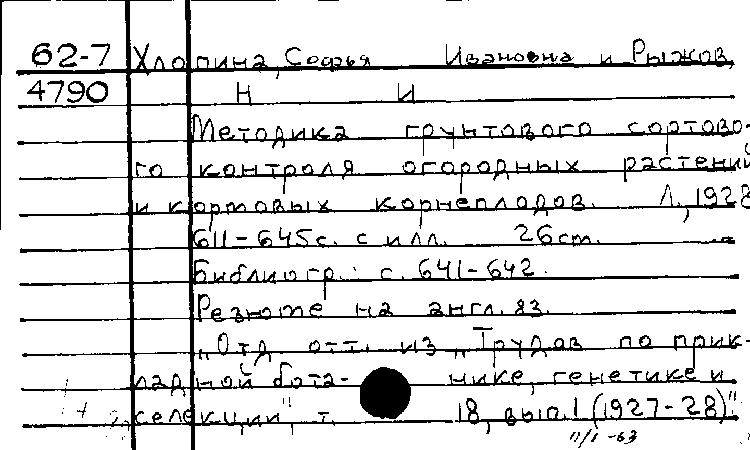 62-7 Хлопина, Софья Ивановна и Рыжов,
4790 Н И
Методика грунтового сортово-
го контроля огородных растений
и кормовых корнеплодов. Л., 1928
611-645с. с илл. 26см.
Библиогр.: с. 641-642.
Резюме на англ. яз.
„Отд. отт. из „Трудов по прик-
ладной бота- нике, генетике и
селекции", т. 18, вып. 1 (1927-28)".